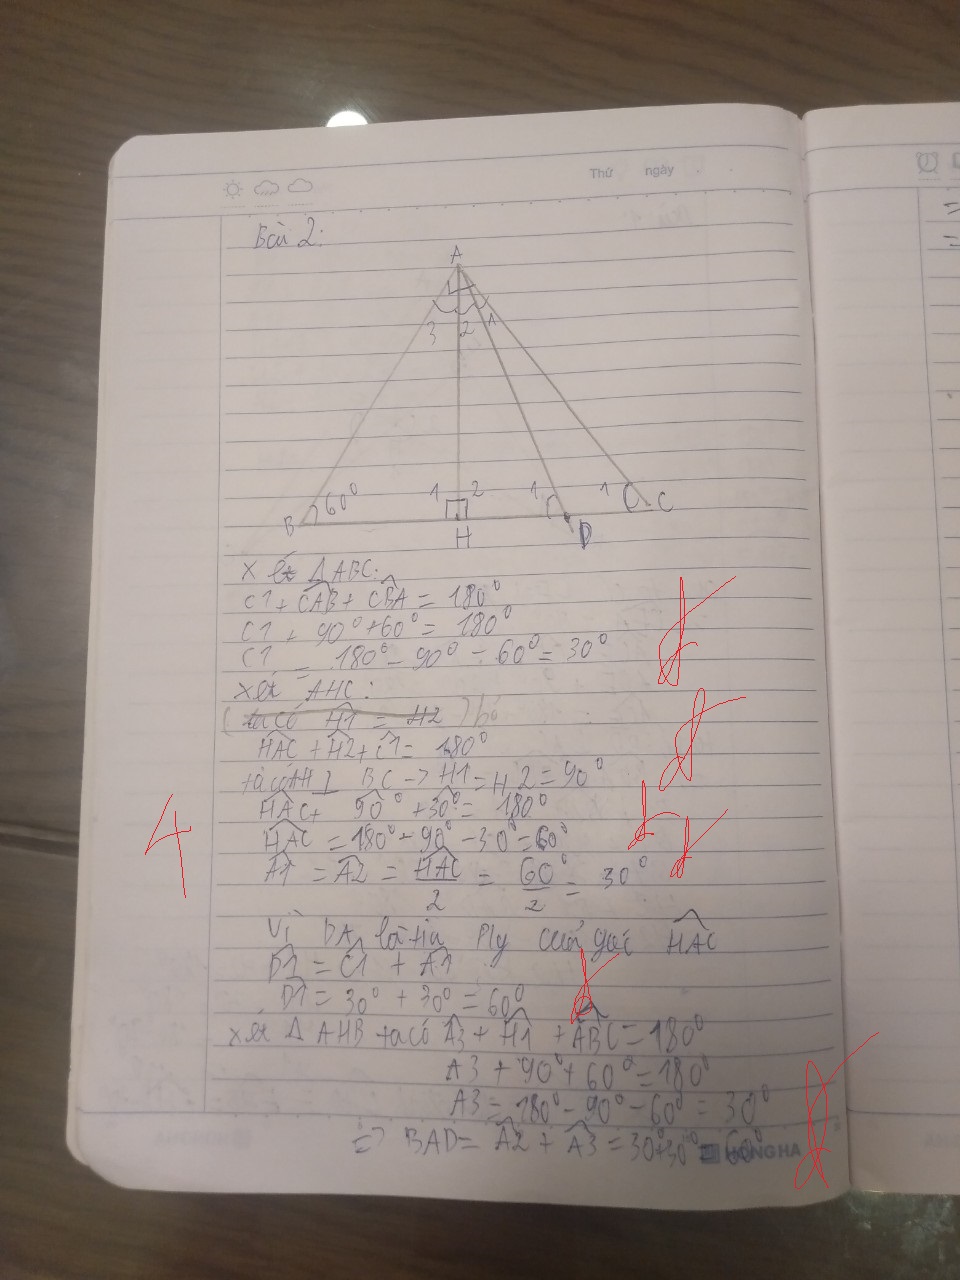 Thứ ngày
Bài 2:
A
3 2 1
B 60⁰ 1 2 1 1 C
H D
Xét Δ ABC:
C1 + CAB + CBA = 180⁰
C1 + 90⁰ + 60⁰ = 180⁰
C1 = 180⁰ - 90⁰ - 60⁰ = 30⁰
Xét AHC:
(ta có H1 = H2) bỏ
HAC + H2 + C1 = 180⁰
ta có AH ⊥ BC -> H1 = H2 = 90⁰
HAC + 90⁰ + 30⁰ = 180⁰
4
HAC = 180⁰ - 90⁰ - 30⁰ = 60⁰
A1 = A2 = HAC/2 = 60⁰/2 = 30⁰
Vì DA là tia Ply của góc HAC
D1 = C1 + A1
D1 = 30⁰ + 30⁰ = 60⁰
Xét Δ AHB ta có A3 + H1 + ABC = 180⁰
A3 + 90⁰ + 60⁰ = 180⁰
A3 = 180⁰ - 90⁰ - 60⁰ = 30⁰
=> BAD = A2 + A3 = 30⁰+30⁰ = 60⁰
HONG HA